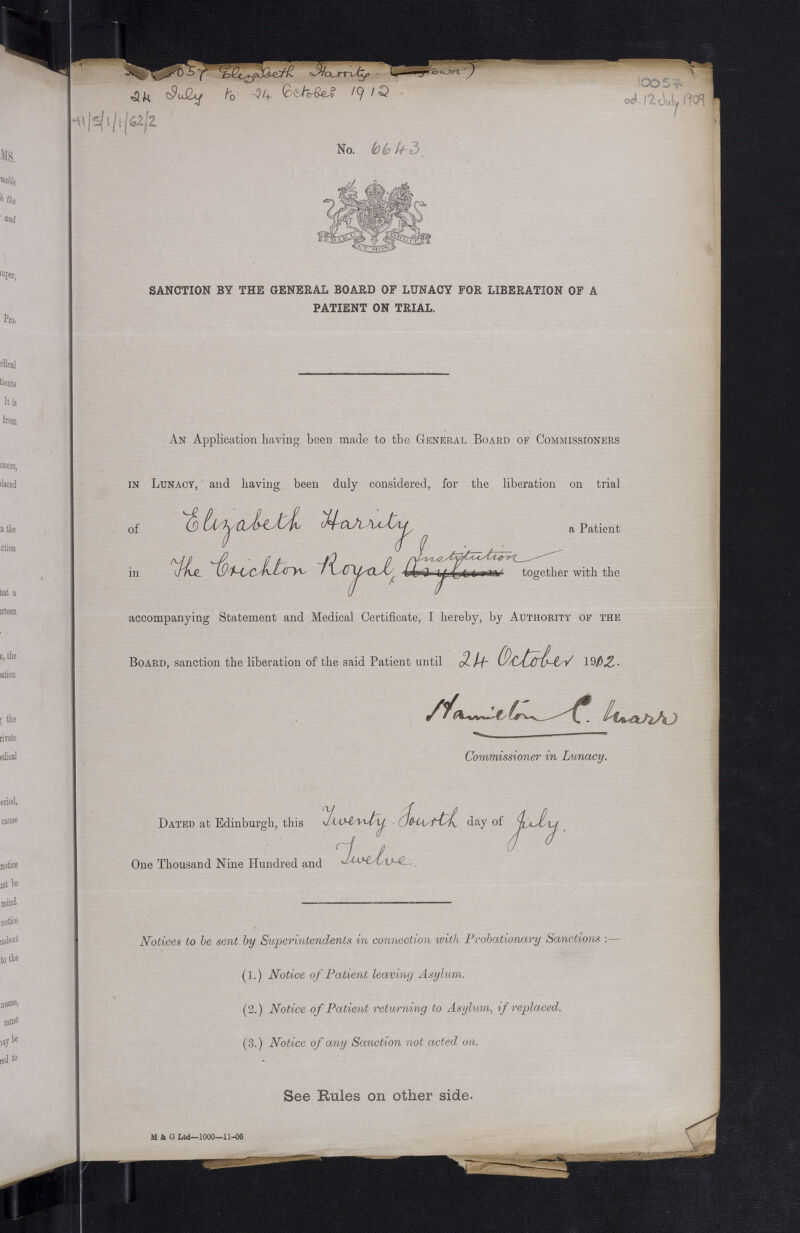 057 Elizabeth Harrity.
24 July to 24 October 1912.
10057
ad. 12 July 1909
11/5/1/1/62/2
No. 6643
SANCTION BY THE GENERAL BOARD OF LUNACY FOR LIBERATION OF A
PATIENT ON TRIAL.
AN Application having been made to the GENERAL BOARD OF COMMISSIONERS
IN LUNACY, and having been duly considered, for the liberation on trial
of Elizabeth Harrity a Patient
Institution
in The Crichton Royal, Asylum together with the
accompanying Statement and Medical Certificate, I hereby, by AUTHORITY OF THE
BOARD, sanction the liberation of the said Patient until 24 October 1912.
Hamilton C. Marr
Commissioner in Lunacy.
DATED at Edinburgh, this Twenty Fourth day of July,
One Thousand Nine Hundred and Twelve.
Notices to be sent by Superintendents in connection with Probationary Sanctions :—
(1.) Notice of Patient leaving Asylum.
(2.) Notice of Patient returning to Asylum, if replaced.
(3.) Notice of any Sanction not acted on.
See Rules on other side.
M & G Ltd—1000—11-06